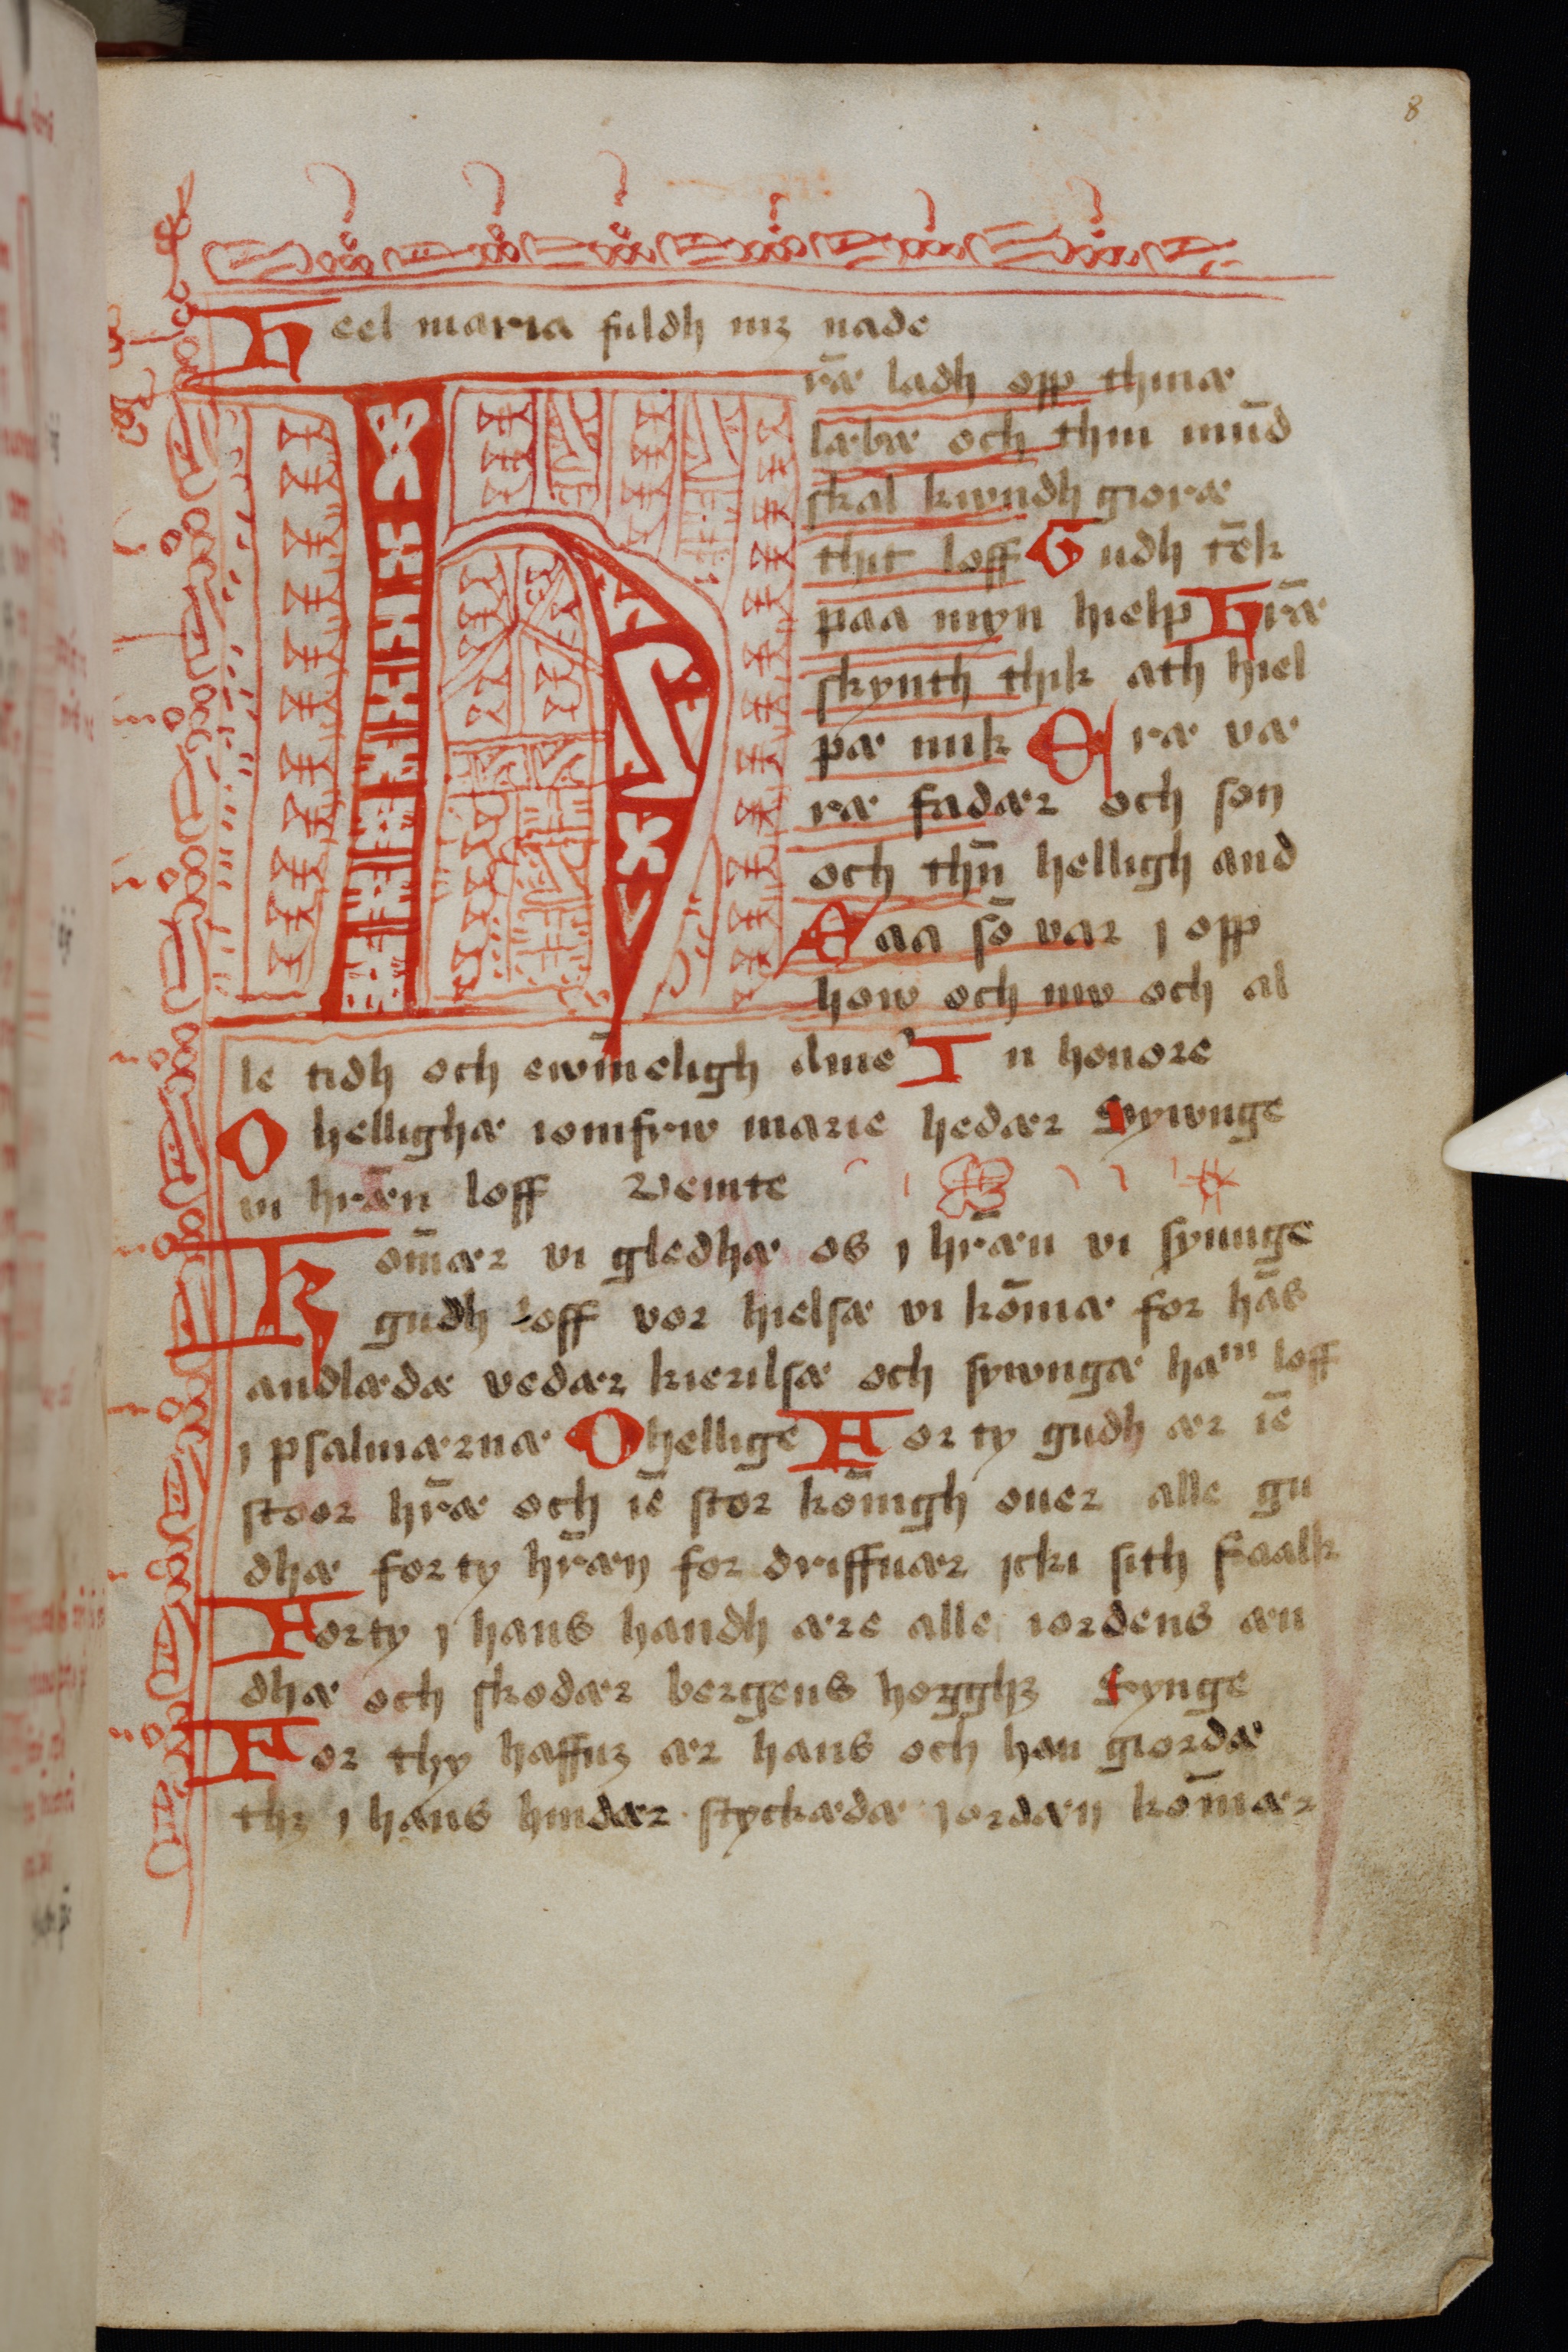 8
Heel maria fuldh mꝫ nade
Hr̄æ ladh opp thinæ
læbæ och thin mūd
skal kwndh giøræ
thit loff Gudh tēk
paa myn hielp Hr̄æ
skynth thik ath hiel
pæ mik Æræ væ
ræ fadær och søn
och thn̄ helligh and
Saa sō var j opp
how och nw och al
le tidh och ewīneligh ame In honore
O hellighæ iomfrw marie hedær Sywnge
vi hr̄æn loff Venite
Kom̄ær vi gledhæ os j hr̄æn vi synnge
gudh loff vor hielsæ vi kōmæ for hās
andlædæ vedær kierilsæ och sywngæ ham loff
j psalmærnæ O hellige For ty gudh ær iē
stoor hr̄æ och iē stor kōnigh ouer alle gu
dhæ for ty hr̄æn for driffuær icki sith faalk
For ty j hans handh ære alle iordens æn
dhæ och skodær bergens høgghꝫ Synge
For thy haffuꝫ ær hans och han giordæ
thꝫ j hans hindær styckædæ jordæn kom̄ær